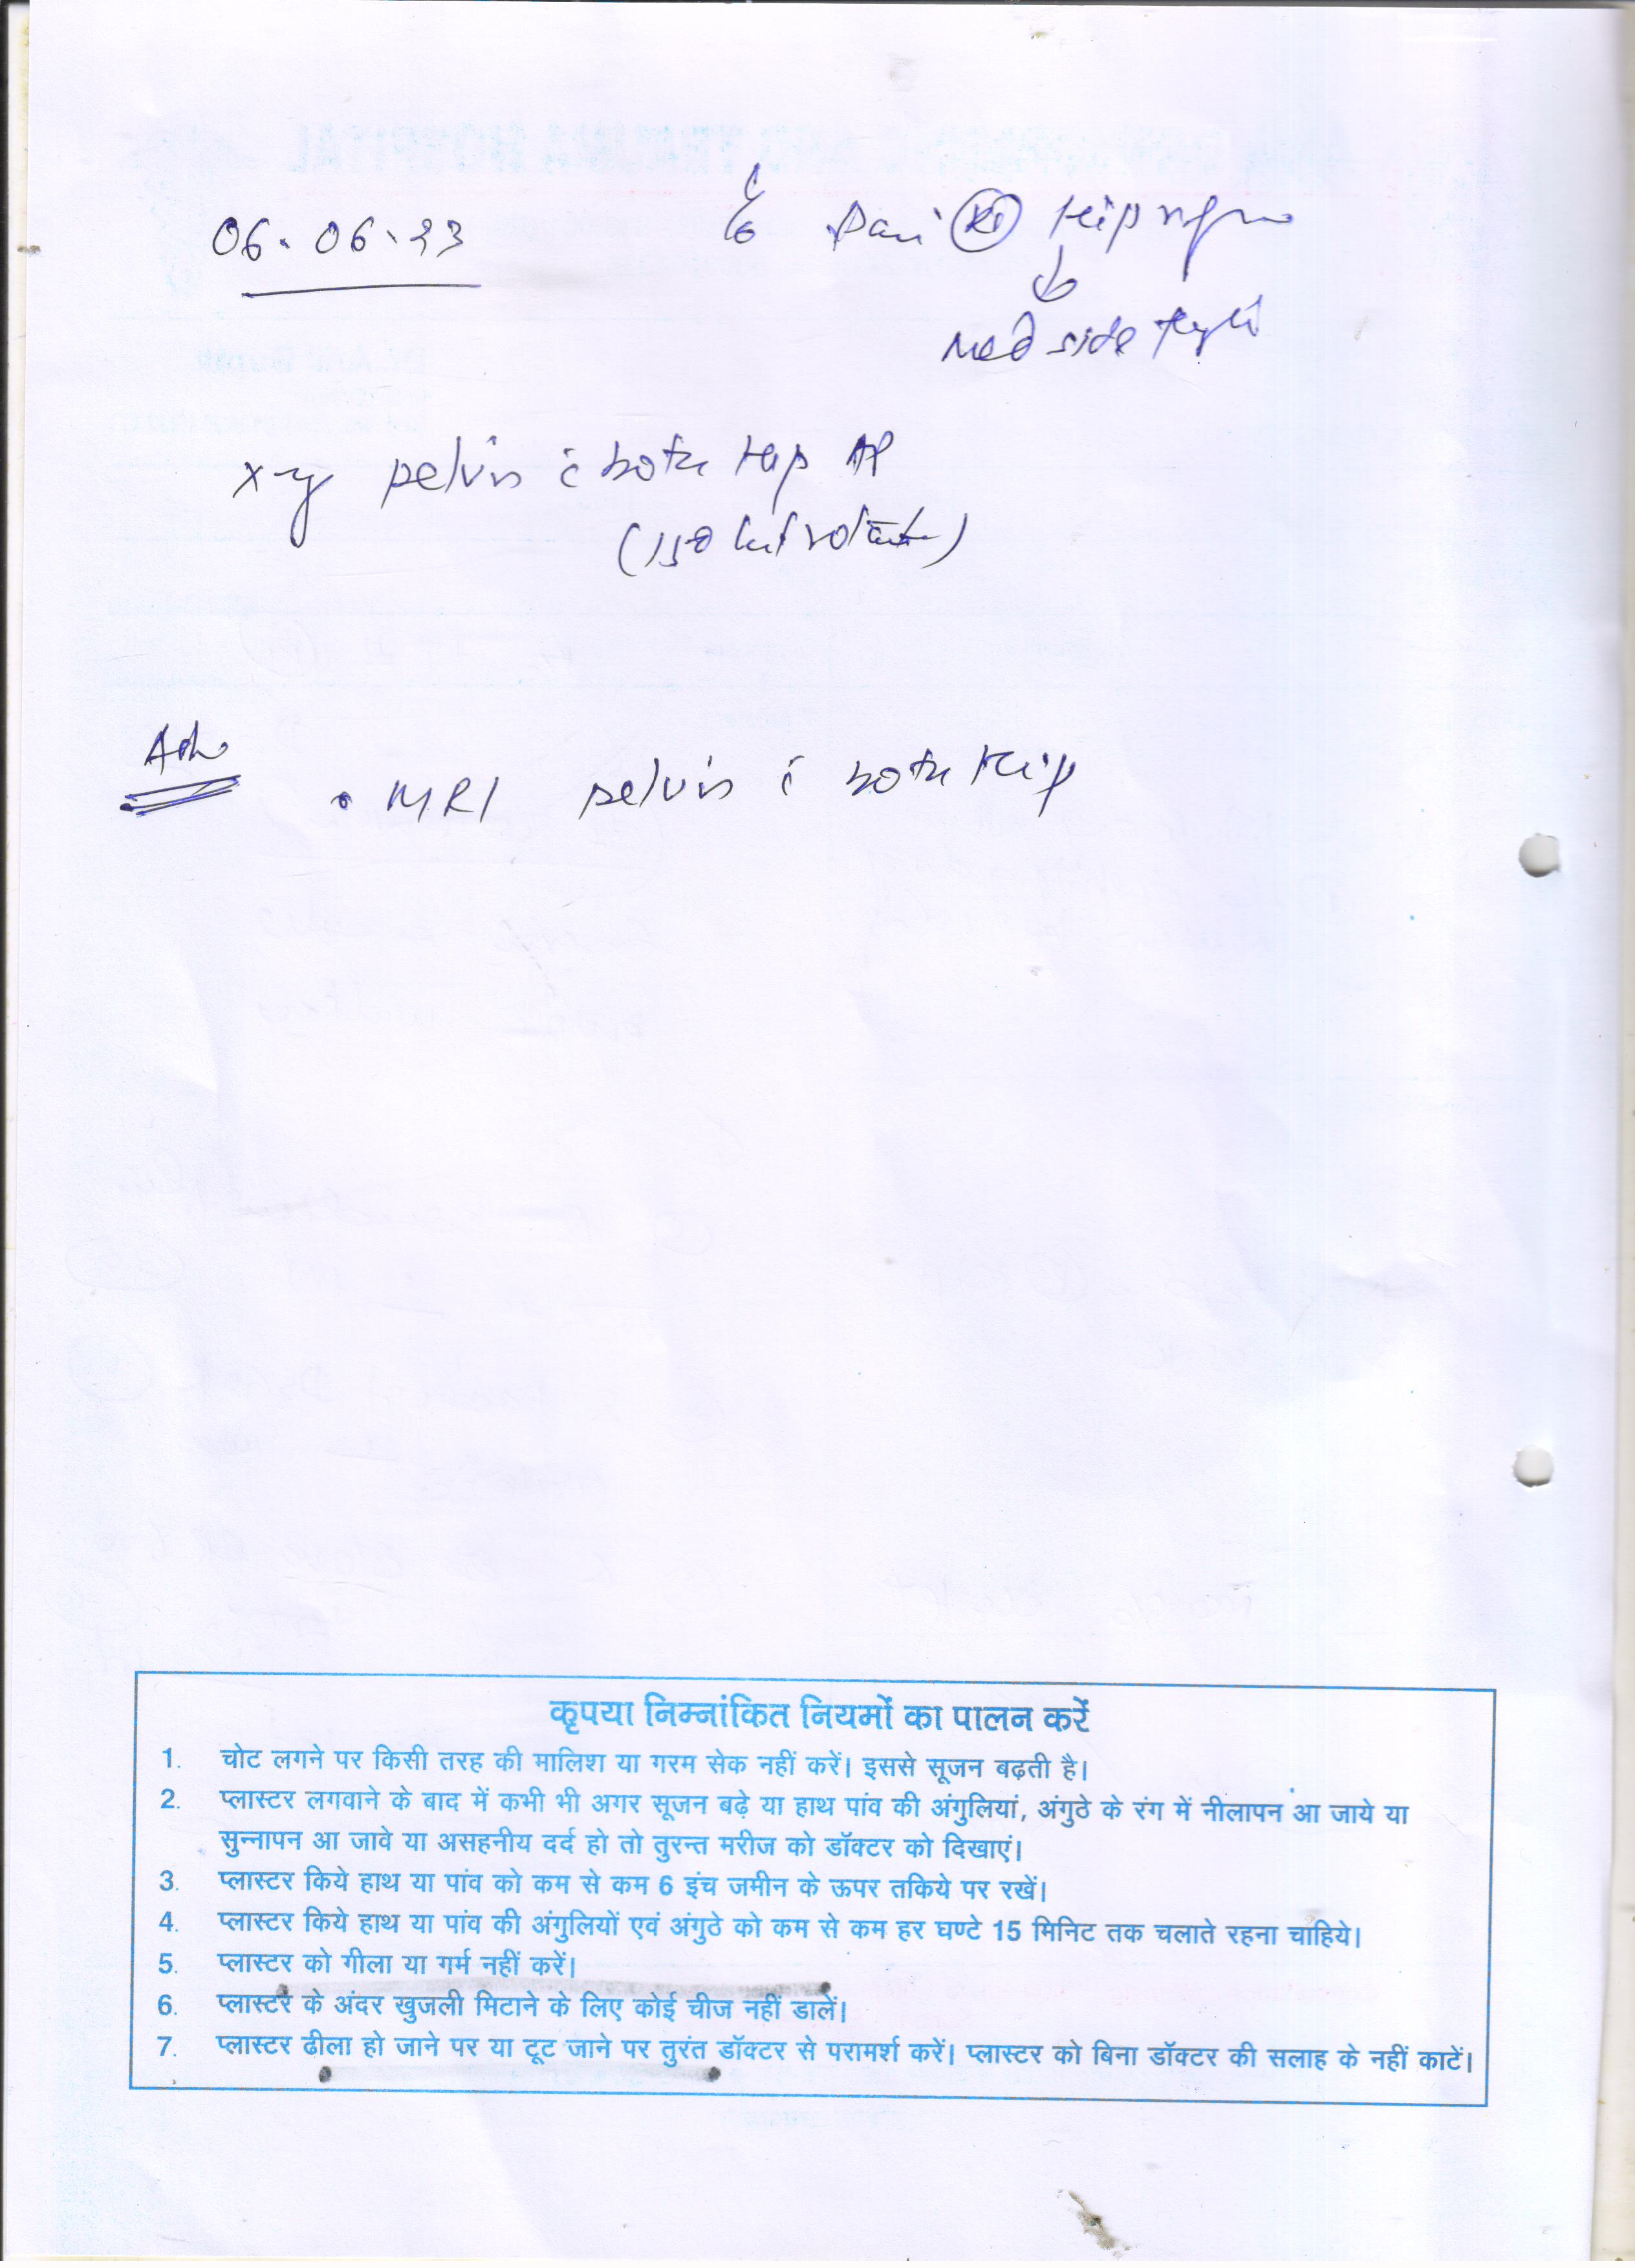 06.06.23
C/o Pain Rt Hip region
↓
Med side thigh
x-ray pelvis c both Hip AP
(15° Int rotation)
Adv
• MRI pelvis c both Hip
कृपया निम्नांकित नियमों का पालन करें
1. चोट लगने पर किसी तरह की मालिश या गरम सेक नहीं करें। इससे सूजन बढ़ती है।
2. प्लास्टर लगवाने के बाद में कभी भी अगर सूजन बढ़े या हाथ पांव की अंगुलियां, अंगुठे के रंग में नीलापन आ जाये या
सुन्नापन आ जावे या असहनीय दर्द हो तो तुरन्त मरीज को डॉक्टर को दिखाएं।
3. प्लास्टर किये हाथ या पांव को कम से कम 6 इंच जमीन के ऊपर तकिये पर रखें।
4. प्लास्टर किये हाथ या पांव की अंगुलियों एवं अंगुठे को कम से कम हर घण्टे 15 मिनिट तक चलाते रहना चाहिये।
5. प्लास्टर को गीला या गर्म नहीं करें।
6. प्लास्टर के अंदर खुजली मिटाने के लिए कोई चीज नहीं डालें।
7. प्लास्टर ढीला हो जाने पर या टूट जाने पर तुरंत डॉक्टर से परामर्श करें। प्लास्टर को बिना डॉक्टर की सलाह के नहीं काटें।